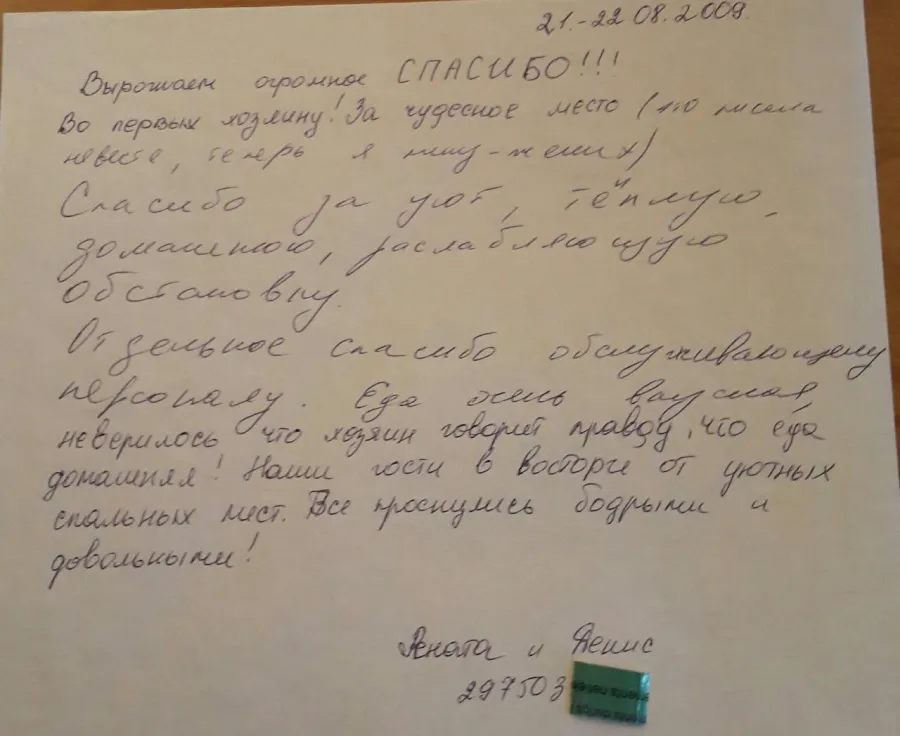 21.-22 08.2009.
Выражаем огромное СПАСИБО!!!
Во первых хозяину! За чудесное место (это писала
невеста, теперь я пишу-жених)
Спасибо за уют, тёплую,
домашнюю, расслабляющую
обстановку.
Отдельное спасибо обслуживающему
персоналу. Еда очень вкусная,
неверилось что хозяин говорит правду, что еда
домашняя! Наши гости в восторге от уютных
спальных мест. Все проснулись бодрыми и
довольными!
Рената и Денис
297503